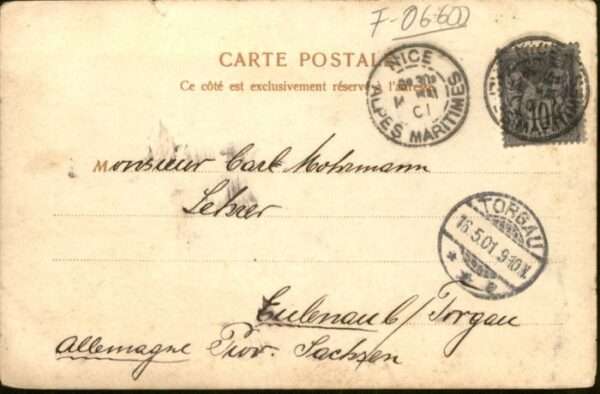 F-06600
CARTE POSTALE
Ce côté est exclusivement réservé à l'adresse
NICE
ALPES MARITIMES
01
10
Monsieur Carl Mohrmann
Lehrer
TORGAU
16.5.01. 9-10V.
Eulenau b/ Torgau
Allemagne Prov. Sachsen